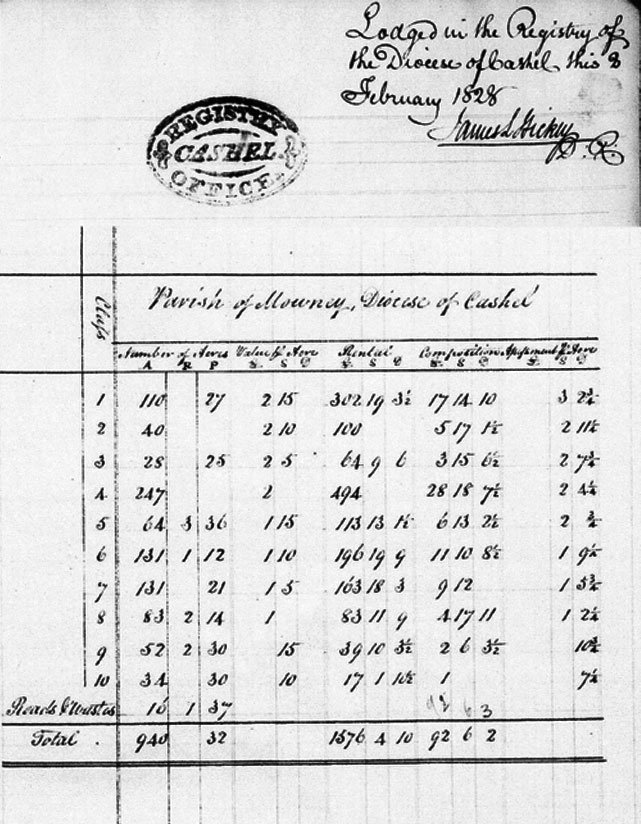 Lodged in the Registry of
the Diocese of Cashel this 8
February 1828
James L Hickey
D. R.
REGISTRY
CASHEL
OFFICE.
Parish of Mowney, Diocese of Cashel
Class
Number of Acres Value ⅌ Acre Rental Composition Assessment ⅌ Acre
A R P £ S D £ S D £ S D £ S D
1 110 27 2 15 302 19 3½ 17 14 10 3 2¾
2 40 2 10 100 5 17 1½ 2 11¼
3 28 25 2 5 64 9 6 3 15 6½ 2 7¾
4 247 2 494 28 18 7½ 2 4¼
5 64 3 36 1 15 113 13 1½ 6 13 2½ 2 ¾
6 131 1 12 1 10 196 19 9 11 10 8½ 1 9¼
7 131 21 1 5 163 18 3 9 12 1 5¾
8 83 2 14 1 83 11 9 4 17 11 1 2¼
9 52 2 30 15 39 10 3½ 2 6 3½ 10¾
10 34 30 10 17 1 10½ 1 7¼
Roads & Wastes 16 1 37 92 6 3
Total . 940 32 1576 4 10 92 6 2